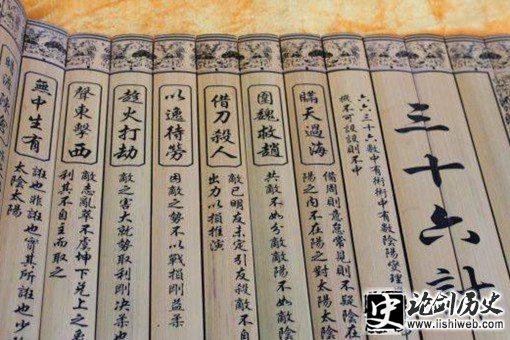 三十六計
六六三十六數中有術術中有數陰陽燮理
機不可設設則不中
瞞天過海
備周則意怠常見則不疑陰在
陽之內不在陽之對太陽太陰
圍魏救趙
共敵不如分敵敵陽不如敵陰
借刀殺人
敵已明友未定引友殺敵不自
出力以損推演
以逸待勞
因敵之勢不以戰損剛益柔
趁火打劫
敵之害大就勢取利剛決柔也
聲東擊西
敵志亂萃不虞坤下兌上之
利其不自主而取之
無中生有
誑也非誑也實其所誑也少
太陰太陽
史
论剑历史
www.lishiweb.com